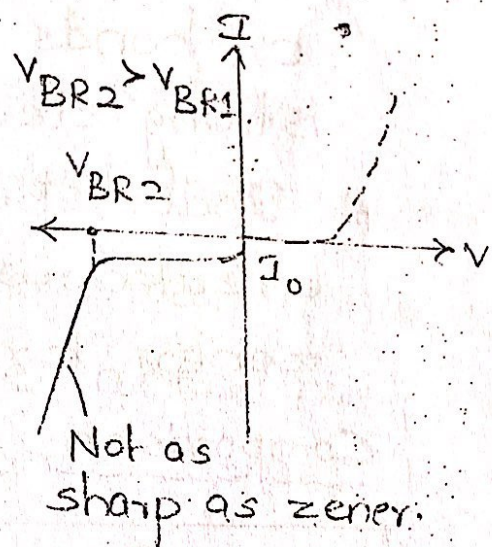 I
V_BR2 > V_BR1
V_BR2
I_0
V
Not as
sharp as zener.